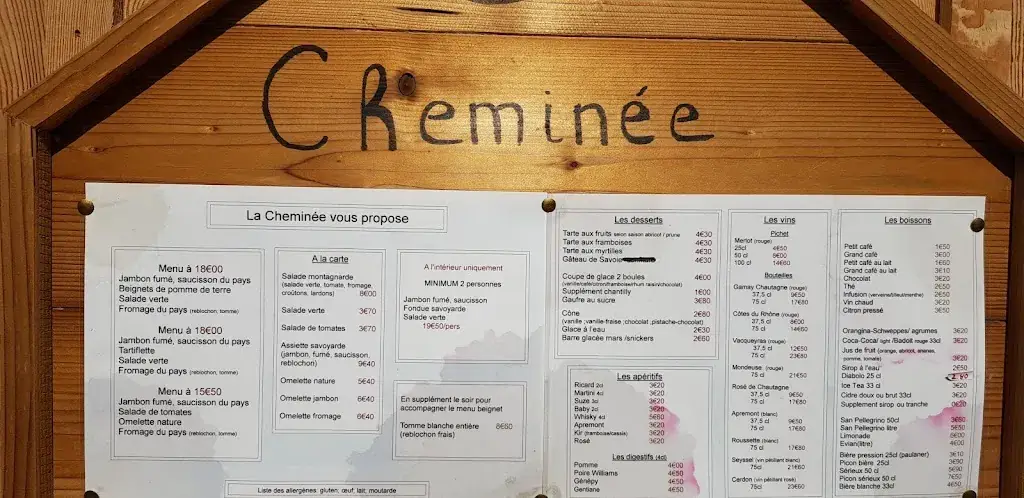 Cheminée
La Cheminée vous propose
Menu à 18€00
Jambon fumé, saucisson du pays
Beignets de pomme de terre
Salade verte
Fromage du pays (reblochon, tomme)
Menu à 18€00
Jambon fumé, saucisson du pays
Tartiflette
Salade verte
Fromage du pays (reblochon, tomme)
Menu à 15€50
Jambon fumé, saucisson du pays
Salade de tomates
Omelette nature
Fromage du pays (reblochon, tomme)
A la carte
Salade montagnarde
(salade verte, tomate, fromage,
croûtons, lardons) 8€00
Salade verte 3€70
Salade de tomates 3€70
Assiette savoyarde
(jambon, fumé, saucisson,
reblochon) 9€40
Omelette nature 5€40
Omelette jambon 6€40
Omelette fromage 6€40
A l'intérieur uniquement
MINIMUM 2 personnes
Jambon fumé, saucisson
Fondue savoyarde
Salade verte
19€50/pers
En supplément le soir pour
accompagner le menu beignet
Tomme blanche entière 8€60
(reblochon frais)
Liste des allergènes: gluten, œuf, lait, moutarde
Les desserts
Tarte aux fruits selon saison abricot / prune 4€30
Tarte aux framboises 4€30
Tarte aux myrtilles 4€30
Gâteau de Savoie 4€30
Coupe de glace 2 boules 4€00
(vanille/café/citron/framboise/rhum raisin/chocolat)
Supplément chantilly 1€00
Gaufre au sucre 3€80
Cône 2€80
(vanille ,vanille-fraise ,chocolat ,pistache-chocolat)
Glace à l'eau 2€30
Barre glacée mars /snickers 2€60
Les apéritifs
Ricard 2cl 3€20
Martini 4cl 3€20
Suze 3cl 3€20
Baby 2cl 3€20
Whisky 4cl 5€60
Apremont 3€20
Kir (framboise/cassis) 3€20
Rosé 3€20
Les digestifs (4cl)
Pomme 4€00
Poire Williams 4€50
Génépy 4€50
Gentiane 4€50
Les vins
Pichet
Merlot (rouge)
25cl 4€50
50 cl 8€00
100 cl 14€60
Bouteilles
Gamay Chautagne (rouge)
37,5 cl 9€50
75 cl 17€80
Côtes du Rhône (rouge)
37,5 cl 8€00
75 cl 14€60
Vacqueyras (rouge)
37,5 cl 12€50
75 cl 23€80
Mondeuse (rouge)
75 cl 21€50
Rosé de Chautagne
37,5 cl 9€50
75 cl 17€80
Apremont (blanc)
37,5 cl 9€50
75 cl 17€80
Roussette (blanc)
75 cl 17€80
Seyssel (vin pétillant blanc)
75cl 21€60
Cerdon (vin pétillant rosé)
75 cl 17€80
Les boissons
Petit café 1€50
Grand café 3€00
Petit café au lait 1€60
Grand café au lait 3€10
Chocolat 3€20
Thé 2€50
Infusion (verveine/tilleul/menthe) 2€50
Vin chaud 3€20
Citron pressé 3€50
Orangina-Schweppes/ agrumes 3€20
Coca-Coca/ light /Badoit rouge 33cl 3€20
Jus de fruit (orange, abricot, ananas,
pomme, tomate) 3€20
Sirop à l'eau 2€50
Diabolo 25 cl
Ice Tea 33 cl 3€20
Cidre doux ou brut 33cl 3€20
Supplément sirop ou tranche 0€20
San Pellegrino 50cl
San Pellegrino litre
Limonade
Evian(litre)
Bière pression 25cl (paulaner) 3€10
Picon bière 25cl
Sérieux 50 cl
Picon sérieux 50 cl
Bière blanche 33cl